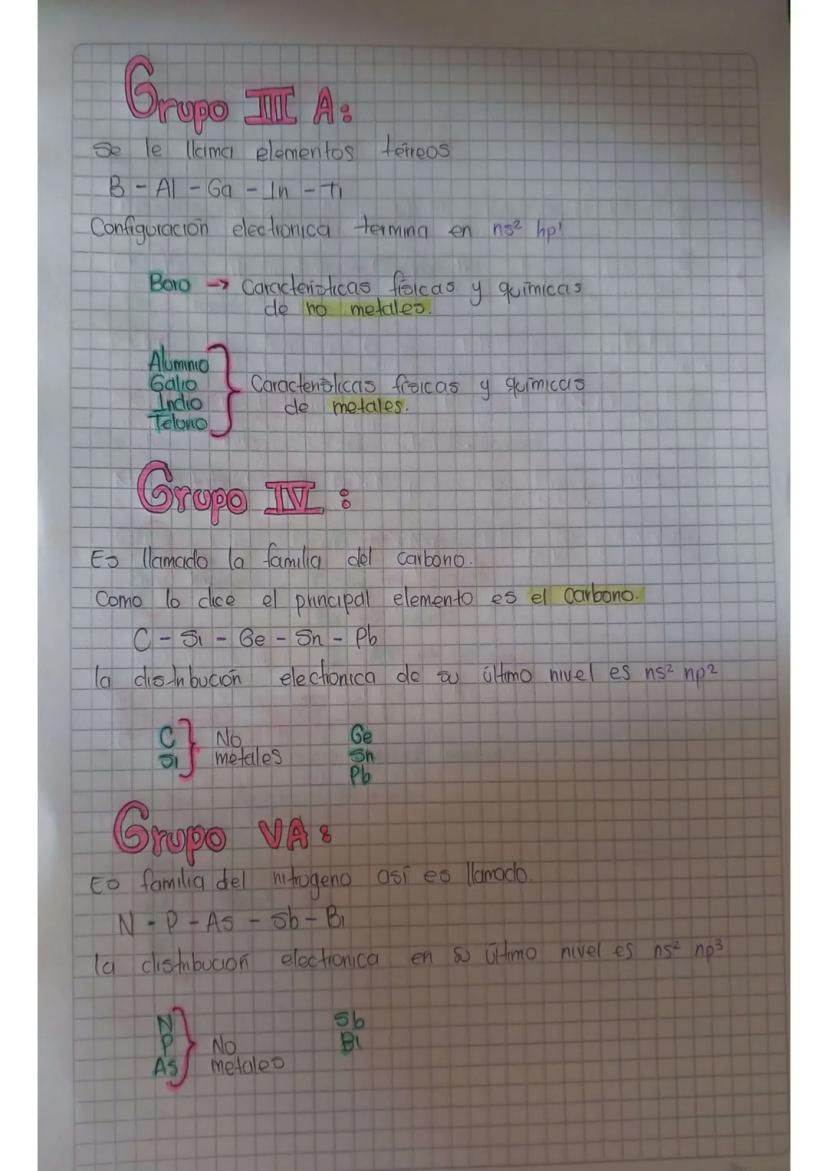 Grupo III A:
Se le llama elementos térreos
B - Al - Ga - In - Ti
Configuración electronica termina en ns² np¹
Boro → Caracteristicas físicas y químicas
de no metales.
Aluminio
Galio
Indio
Telurio
Caracteristicas físicas y químicas
de metales.
Grupo IV :
Es llamado la familia del carbono.
Como lo dice el principal elemento es el carbono.
C - Si - Ge - Sn - Pb
la distribución electronica de su último nivel es ns² np²
C
Si
No
metales
Ge
Sn
Pb
Grupo VA:
Es familia del nitrogeno así es llamado.
N - P - As - Sb - Bi
la distribución electronica en su último nivel es ns² np³
N
P
As
No
metales
Sb
Bi